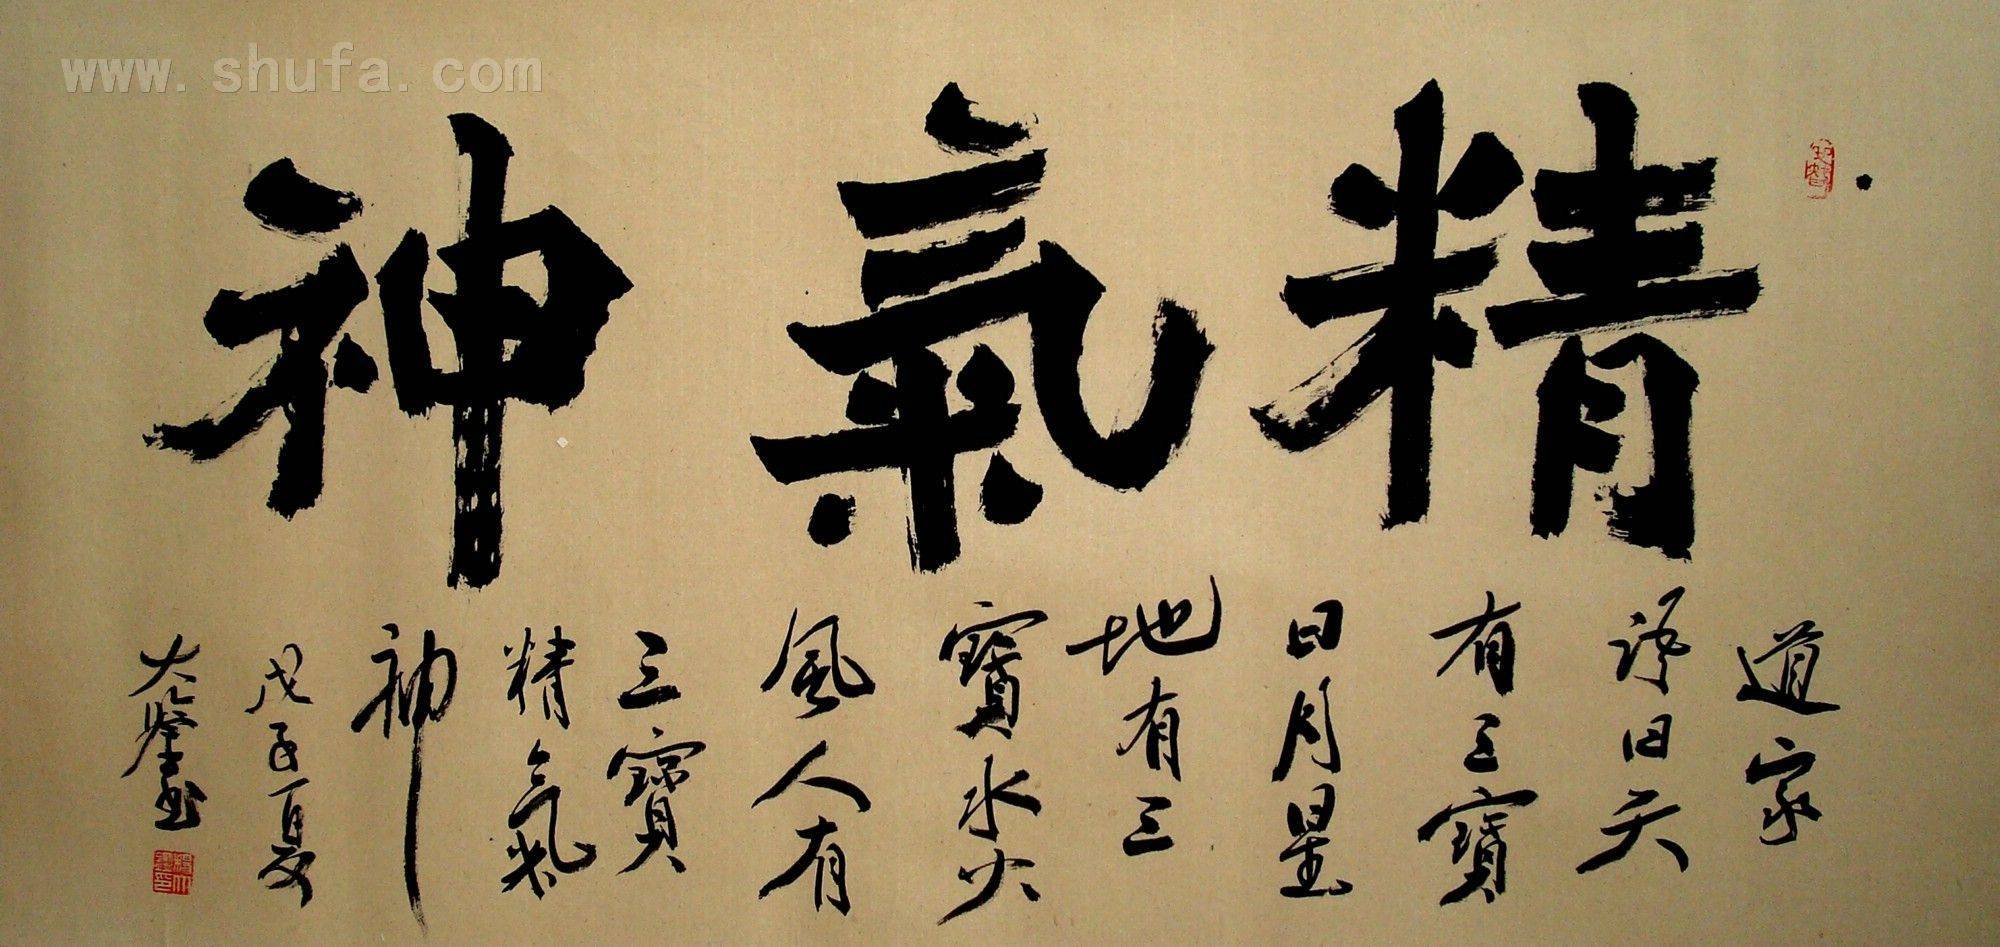 www.shufa.com
精氣神
道家
諺曰天
有三寶
日月星
地有三
寶水火
風人有
三寶
精氣
神
戊子夏
大隆書